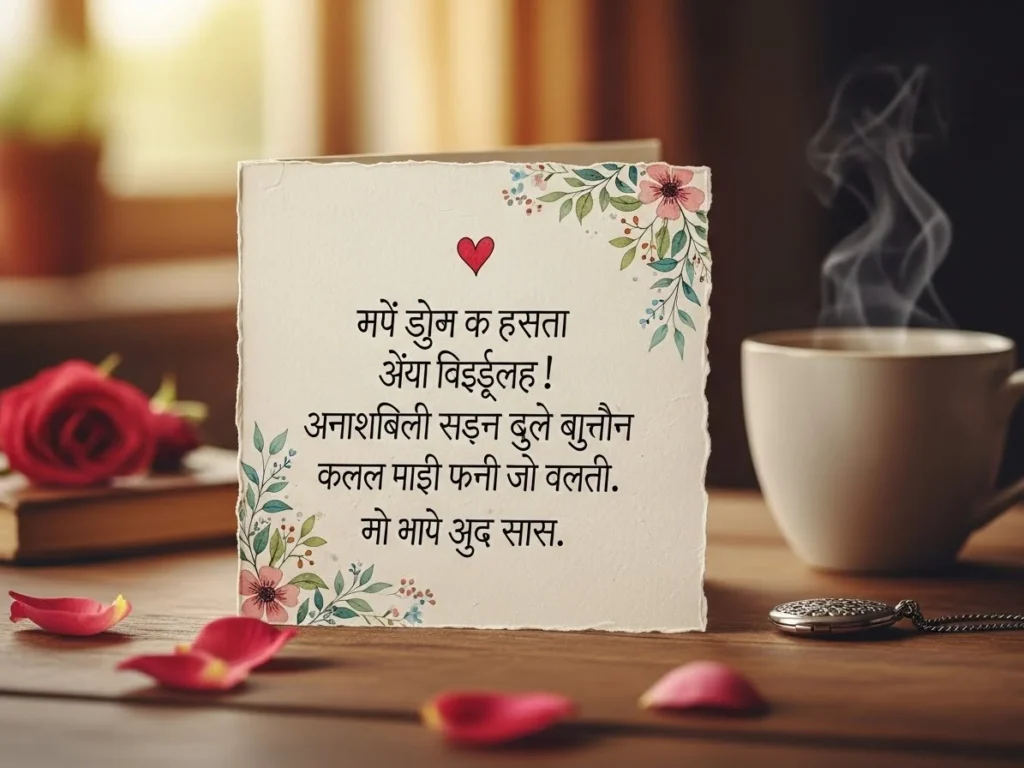 मपें डोुम क हसता
अेंया विइर्डूलह !
अनाशबिली सड़न बुले बाुनौन
कलल माइी फनी जो वलती.
मो भापे अुद सास.